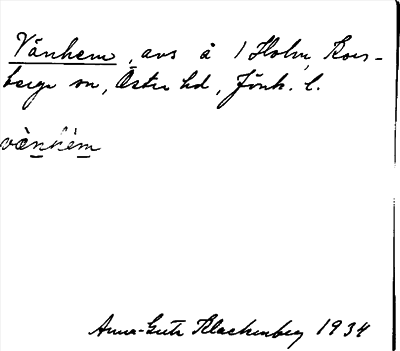 Vänhem, avs å 1 Holm, Kors-
berga sn, Östra hd, Jönk. l.
vä̀nhèm
Anna-Greta Klackenberg 1934